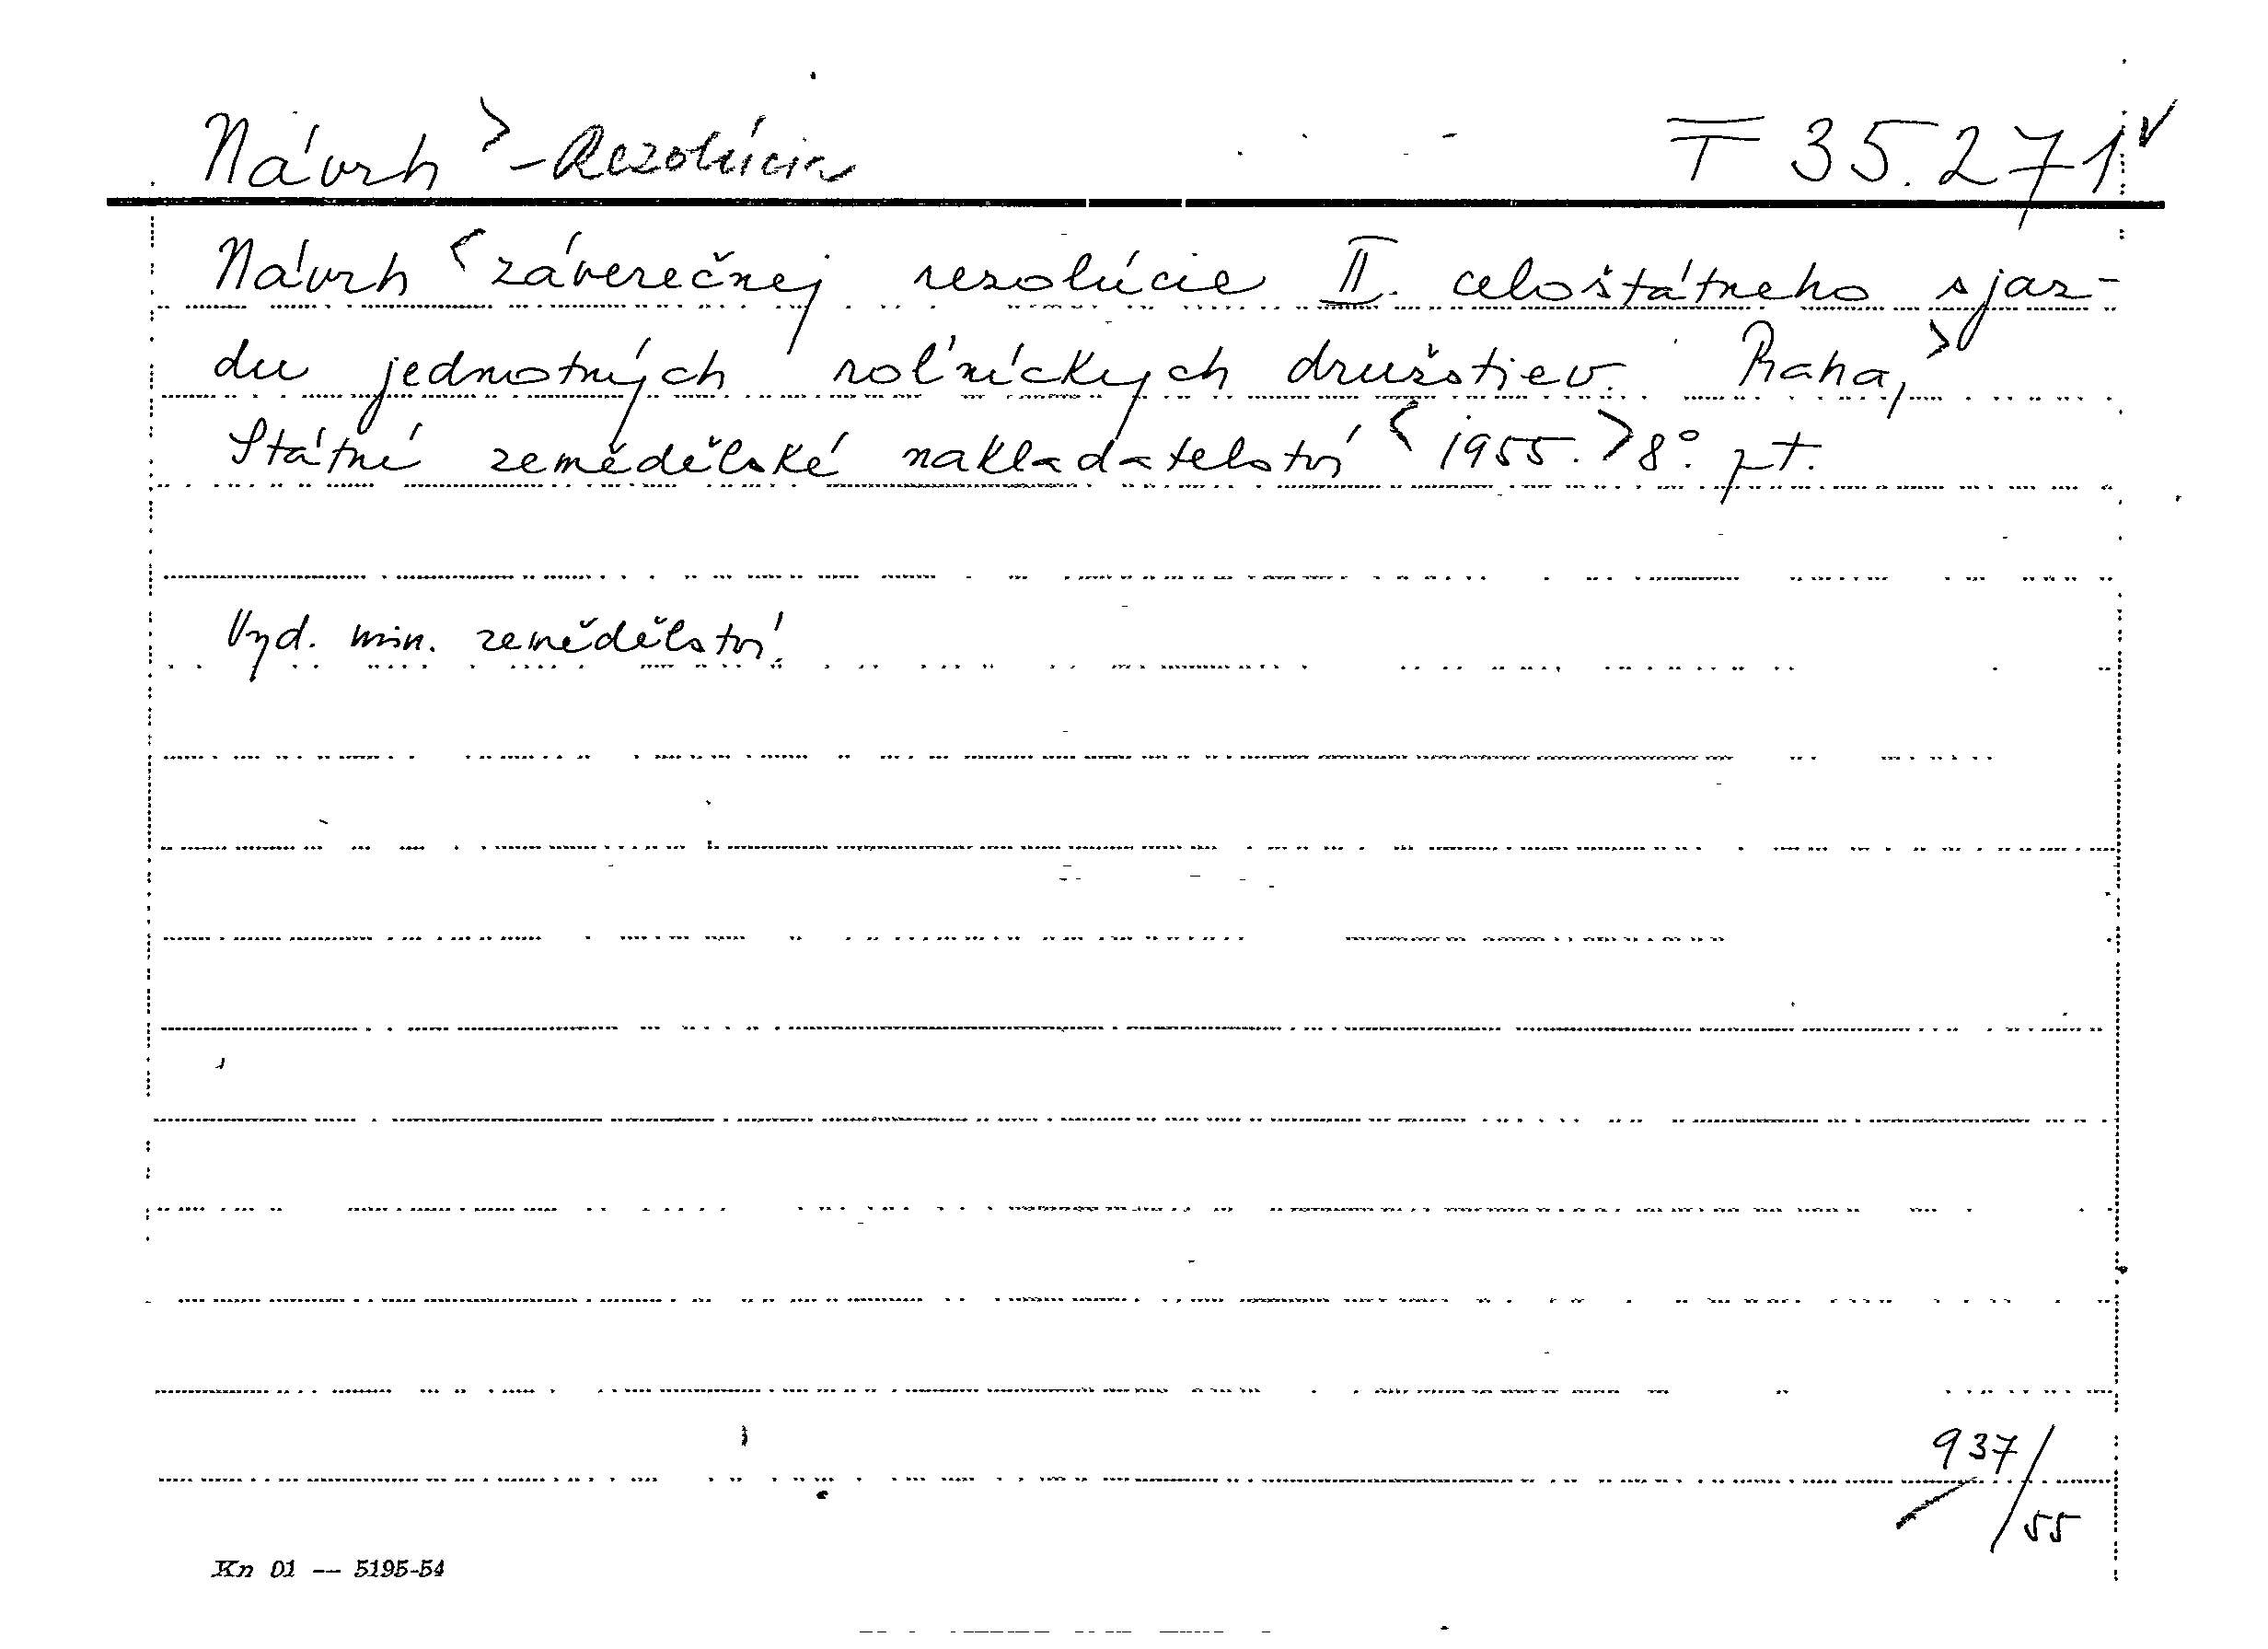 Návrh > - Rezolúcia T 35.271 v
Návrh < záverečnej rezolúcie II. celoštátneho sjaz-
du jednotných roľníckych družstiev. Praha, >
Státní zemědělské nakladatelství < 1955. > 8°. pt.
Vyd. min. zemědělství.
937/55
Kn 01 — 5195-54